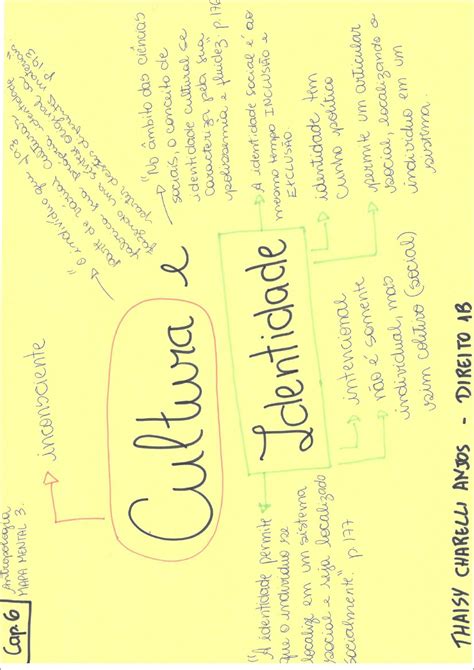 Cap. 6
Antropologia
MAPA MENTAL 3.
inconsciente
"O indivíduo que faz
parte de várias culturas
fabrica sua própria identidade
fazendo uma síntese original a
partir
p 193
"No âmbito das ciências
sociais, o conceito de
identidade cultural se
caracteriza pela sua
polissemia e fluidez." p. 176
Cultura e
Identidade
A identidade social é ao
mesmo tempo INCLUSÃO e
EXCLUSÃO.
identidade tem
cunho político
permite um articular
social, localizando o
indivíduo em um
sistema.
intencional
não é somente
individual, mas
sim coletivo (social)
"A identidade permite
que o indivíduo se
localize em um sistema
social e seja localizado
socialmente." p. 177
THAISY CHARELLI ANJOS - DIREITO 1B